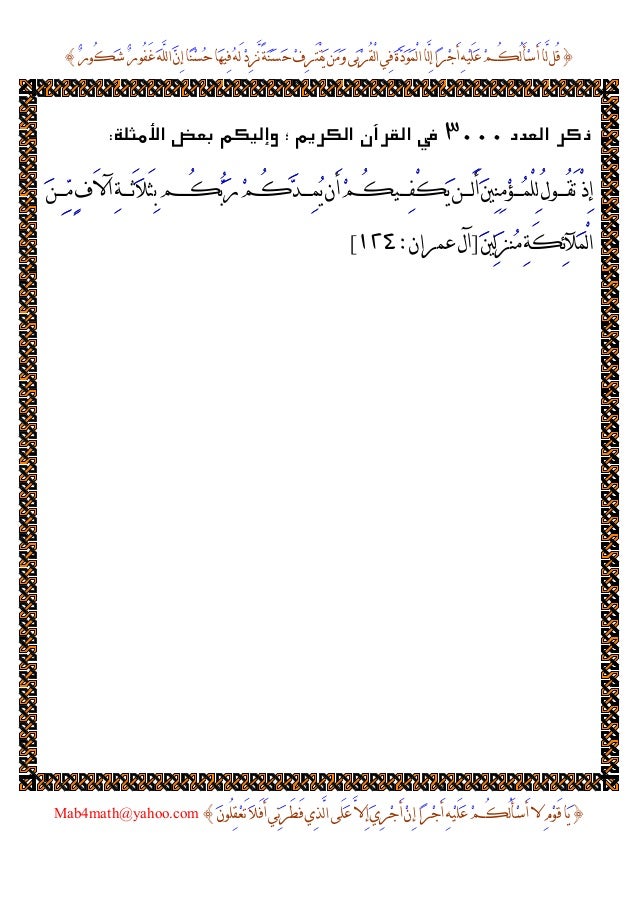 ﴿ قُل لَّا أَسْأَلُكُمْ عَلَيْهِ أَجْرًا إِلَّا الْمَوَدَّةَ فِي الْقُرْبَى وَمَن يَقْتَرِفْ حَسَنَةً نَّزِدْ لَهُ فِيهَا حُسْنًا إِنَّ اللَّهَ غَفُورٌ شَكُورٌ ﴾
ذكر العدد ٣٠٠٠ في القرآن الكريم ؛ وإليكم بعض الأمثلة:
إِذْ تَقُولُ لِلْمُؤْمِنِينَ أَلَن يَكْفِيكُمْ أَن يُمِدَّكُمْ رَبُّكُم بِثَلَاثَةِ آلَافٍ مِّنَ
الْمَلَآئِكَةِ مُنزَلِينَ [آل عمران: ١٢٤]
﴿ يَا قَوْمِ لا أَسْأَلُكُمْ عَلَيْهِ أَجْرًا إِنْ أَجْرِيَ إِلاَّ عَلَى الَّذِي فَطَرَنِي أَفَلاَ تَعْقِلُونَ ﴾ Mab4math@yahoo.com